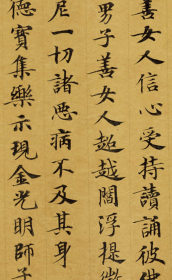 善女人信心受持讀誦彼佛
男子善女人超越閻浮提微
尼一切諸惡病不及其身
德寶集樂示現金光明師子